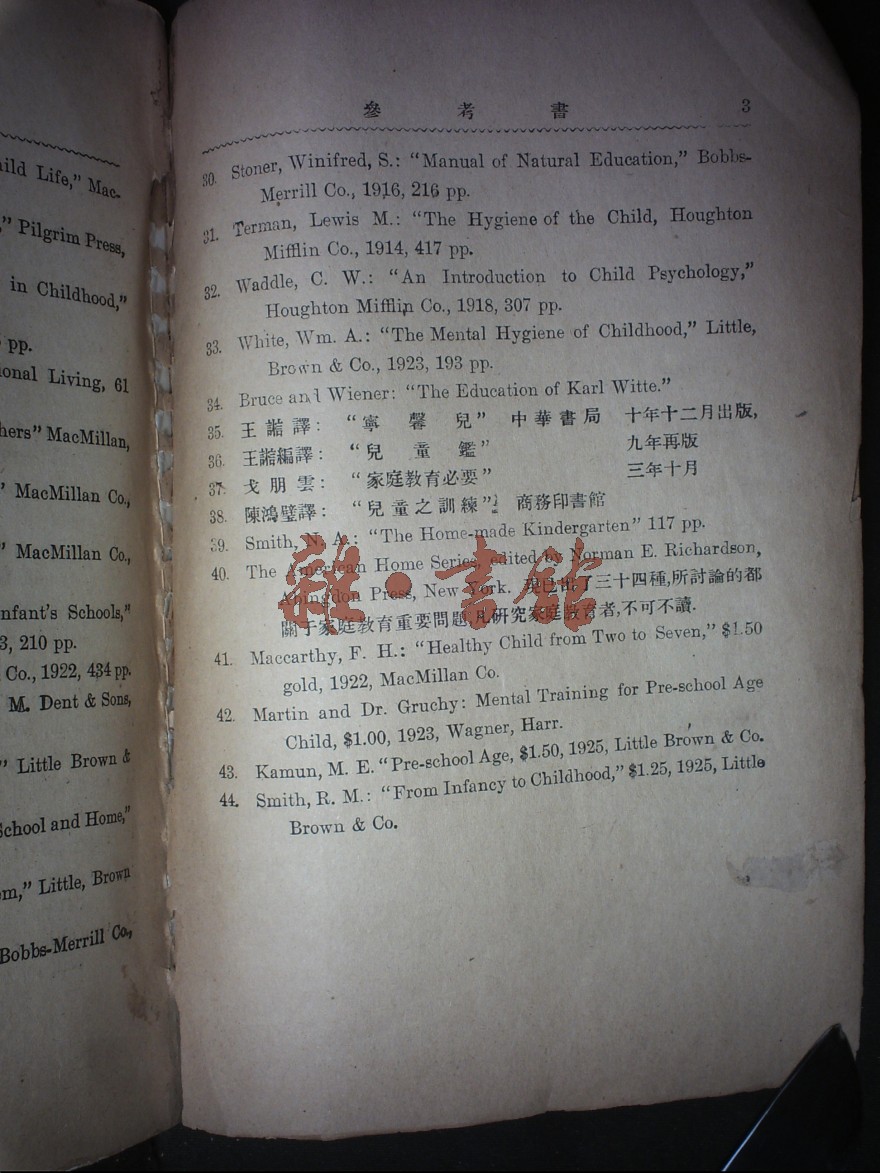 ild Life," Mac-
" Pilgrim Press,
in Childhood,"
pp.
onal Living, 61
hers" MacMillan,
" MacMillan Co.,
" MacMillan Co.,
nfant's Schools,"
3, 210 pp.
Co., 1922, 434 pp.
M. Dent & Sons,
" Little Brown &
School and Home,"
m," Little, Brown
Bobbs-Merrill Co.,
參考書 3
30. Stoner, Winifred, S.: "Manual of Natural Education," Bobbs-
Merrill Co., 1916, 216 pp.
31. Terman, Lewis M.: "The Hygiene of the Child, Houghton
Mifflin Co., 1914, 417 pp.
32. Waddle, C. W.: "An Introduction to Child Psychology,"
Houghton Mifflin Co., 1918, 307 pp.
33. White, Wm. A.: "The Mental Hygiene of Childhood," Little,
Brown & Co., 1923, 193 pp.
34. Bruce and Wiener: "The Education of Karl Witte."
35. 王譜譯: "寧馨兒" 中華書局 十年十二月出版,
36. 王譜編譯: "兒童鑑" 九年再版
37. 戈朋雲: "家庭教育必要" 三年十月
38. 陳鴻璧譯: "兒童之訓練" 商務印書館
39. Smith, N. A.: "The Home-made Kindergarten" 117 pp.
40. The American Home Series, edited by Norman E. Richardson,
Abingdon Press, New York. 現已出了三十四種,所討論的都
關于家庭教育重要問題凡研究家庭教育者,不可不讀.
41. Maccarthy, F. H.: "Healthy Child from Two to Seven," $1.50
gold, 1922, MacMillan Co.
42. Martin and Dr. Gruchy: Mental Training for Pre-school Age
Child, $1.00, 1923, Wagner, Harr.
43. Kamun, M. E. "Pre-school Age, $1.50, 1925, Little Brown & Co.
44. Smith, R. M.: "From Infancy to Childhood," $1.25, 1925, Little
Brown & Co.
雜·書館